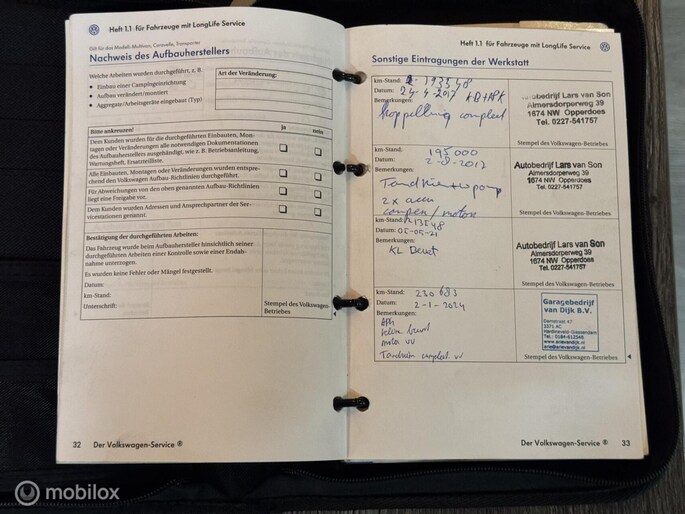 Heft 1.1 für Fahrzeuge mit LongLife Service
Gilt für das Modell: Multivan, Caravelle, Transporter
Nachweis des Aufbauherstellers
Welche Arbeiten wurden durchgeführt, z. B.
• Einbau einer Campingeinrichtung
• Aufbau verändert/montiert
• Aggregate/Arbeitsgeräte eingebaut (Typ)
Art der Veränderung:
Bitte ankreuzen!
ja
nein
Dem Kunden wurden für die durchgeführten Einbauten, Mon-
tagen oder Veränderungen alle notwendigen Dokumentationen
des Aufbauherstellers ausgehändigt, wie z. B. Betriebsanleitung,
Wartungsheft, Ersatzteilliste.
Alle Einbauten, Montagen oder Veränderungen wurden entspre-
chend den Volkswagen Aufbau-Richtlinien durchgeführt.
Für Abweichungen von den oben genannten Aufbau-Richtlinien
liegt eine Freigabe vor.
Dem Kunden wurden Adressen und Ansprechpartner der Ser-
vicestationen genannt.
Bestätigung der durchgeführten Arbeiten:
Das Fahrzeug wurde beim Aufbauhersteller hinsichtlich seiner
durchgeführten Arbeiten einer Kontrolle sowie einer Endab-
nahme unterzogen.
Es wurden keine Fehler oder Mängel festgestellt.
Datum:
km-Stand:
Unterschrift:
Stempel des Volkswagen-
Betriebes
32
Der Volkswagen-Service ®
Heft 1.1 für Fahrzeuge mit LongLife Service
Sonstige Eintragungen der Werkstatt
km-Stand: 193548
Datum: 24-4-2017
Bemerkungen:
Koppelling compleet
Autobedrijf Lars van Son
Almersdorperweg 39
1674 NW Opperdoes
Tel. 0227-541757
Stempel des Volkswagen-Betriebes
km-Stand: 195000
Datum: 2-8-2017
Bemerkungen:
2 x accu
Autobedrijf Lars van Son
Almersdorperweg 39
1674 NW Opperdoes
Tel. 0227-541757
Stempel des Volkswagen-Betriebes
km-Stand: 213548
Datum: 05-05-21
Bemerkungen:
KL Beurt
Autobedrijf Lars van Son
Almersdorperweg 39
1674 NW Opperdoes
Tel. 0227-541757
Stempel des Volkswagen-Betriebes
km-Stand: 230683
Datum: 2-1-2024
Bemerkungen:
APK
kleine beurt
motor vv
Tandriem compleet vv
Garagebedrijf
van Dijk B.V.
Damstraat 47
3371 AC
Hardinxveld-Giessendam
Stempel des Volkswagen-Betriebes
Der Volkswagen-Service ®
33
mobilox